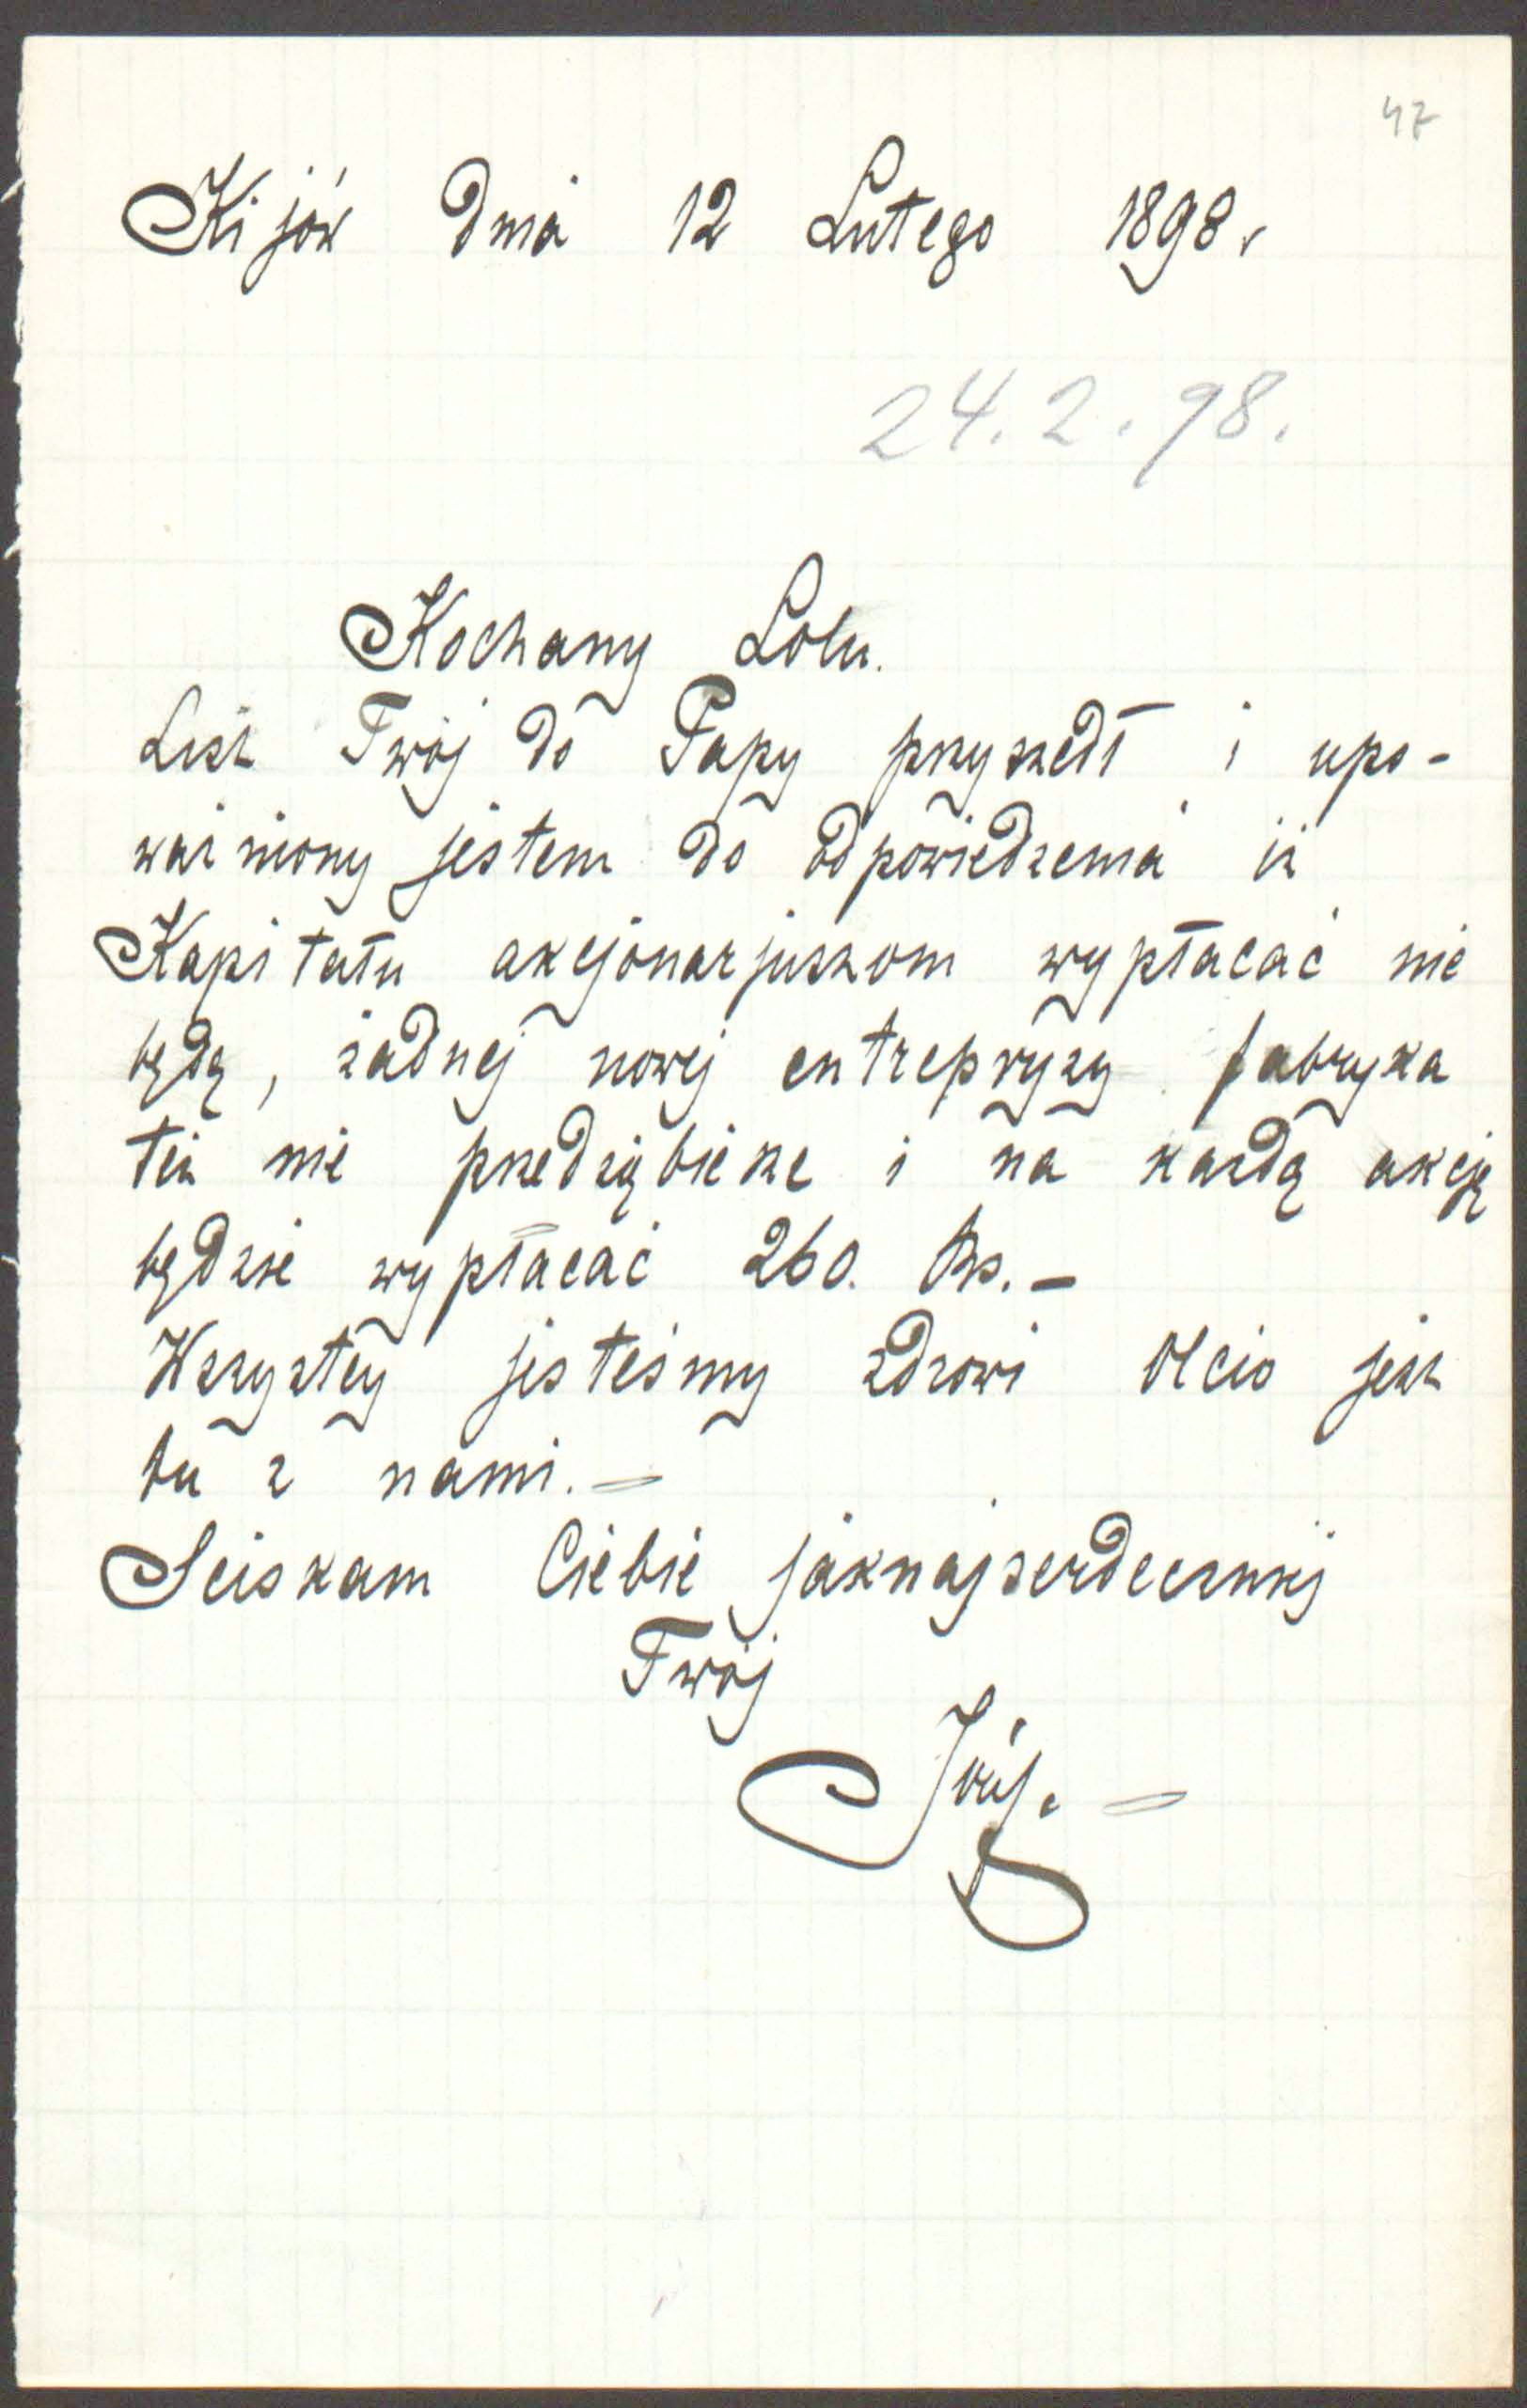 47
Kijów dnia 12 Lutego 1898 r
24.2.98.
Kochany Lolu.
List Twój do Papy przyszedł i upo-
ważniony jestem do odpowiedzenia iż
Kapitału akcjonarjuszom wypłacać nie
będą, żadnej nowej entrepryzy fabryka
też nie przedsiębierze i na każdą akcję
będzie wypłacać 260. Rs. —
Wszyszcy jesteśmy zdrowi Olcio jest
tu z nami. —
Sciskam Ciebie jaknajserdeczniej
Twój
Józef. —